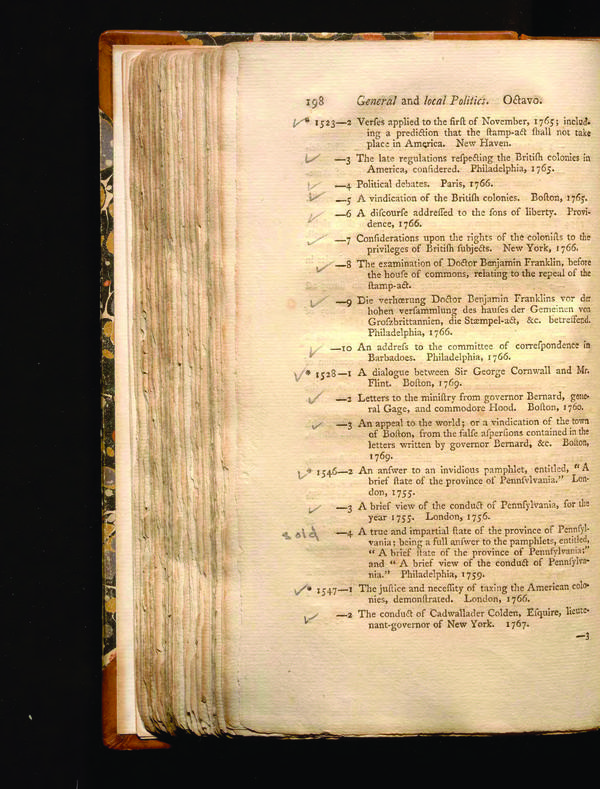 198 General and local Politics. Octavo.
✓* 1523—2 Verſes applied to the firſt of November, 1765; includ-
ing a prediction that the ſtamp-act ſhall not take
place in America. New Haven.
✓ —3 The late regulations reſpecting the Britiſh colonies in
America, conſidered. Philadelphia, 1765.
✓ —4 Political debates. Paris, 1766.
✓ —5 A vindication of the Britiſh colonies. Boſton, 1765.
✓ —6 A diſcourſe addreſſed to the ſons of liberty. Provi-
dence, 1766.
✓ —7 Conſiderations upon the rights of the coloniſts to the
privileges of Britiſh ſubjects. New York, 1766.
✓ —8 The examination of Doctor Benjamin Franklin, before
the houſe of commons, relating to the repeal of the
ſtamp-act.
✓ —9 Die verhœrung Doctor Benjamin Franklins vor der
hohen verſammlung des hauſes der Gemeinen von
Groſzbrittannien, die Stæmpel-act, &c. betreffend.
Philadelphia, 1766.
✓ —10 An addreſs to the committee of correſpondence in
Barbadoes. Philadelphia, 1766.
✓* 1528—1 A dialogue between Sir George Cornwall and Mr.
Flint. Boſton, 1769.
✓ —2 Letters to the miniſtry from governor Bernard, gene-
ral Gage, and commodore Hood. Boſton, 1760.
✓ —3 An appeal to the world; or a vindication of the town
of Boſton, from the falſe aſperſions contained in the
letters written by governor Bernard, &c. Boſton,
1769.
✓* 1546—2 An anſwer to an invidious pamphlet, entitled, "A
brief ſtate of the province of Pennſylvania." Lon-
don, 1755.
✓ —3 A brief view of the conduct of Pennſylvania, for the
year 1755. London, 1756.
sold —4 A true and impartial ſtate of the province of Pennſyl-
vania; being a full anſwer to the pamphlets, entitled,
"A brief ſtate of the province of Pennſylvania;"
and "A brief view of the conduct of Pennſylva-
nia." Philadelphia, 1759.
✓* 1547—1 The juſtice and neceſſity of taxing the American colo-
nies, demonſtrated. London, 1766.
✓ —2 The conduct of Cadwallader Colden, Eſquire, lieute-
nant-governor of New York. 1767.
—3